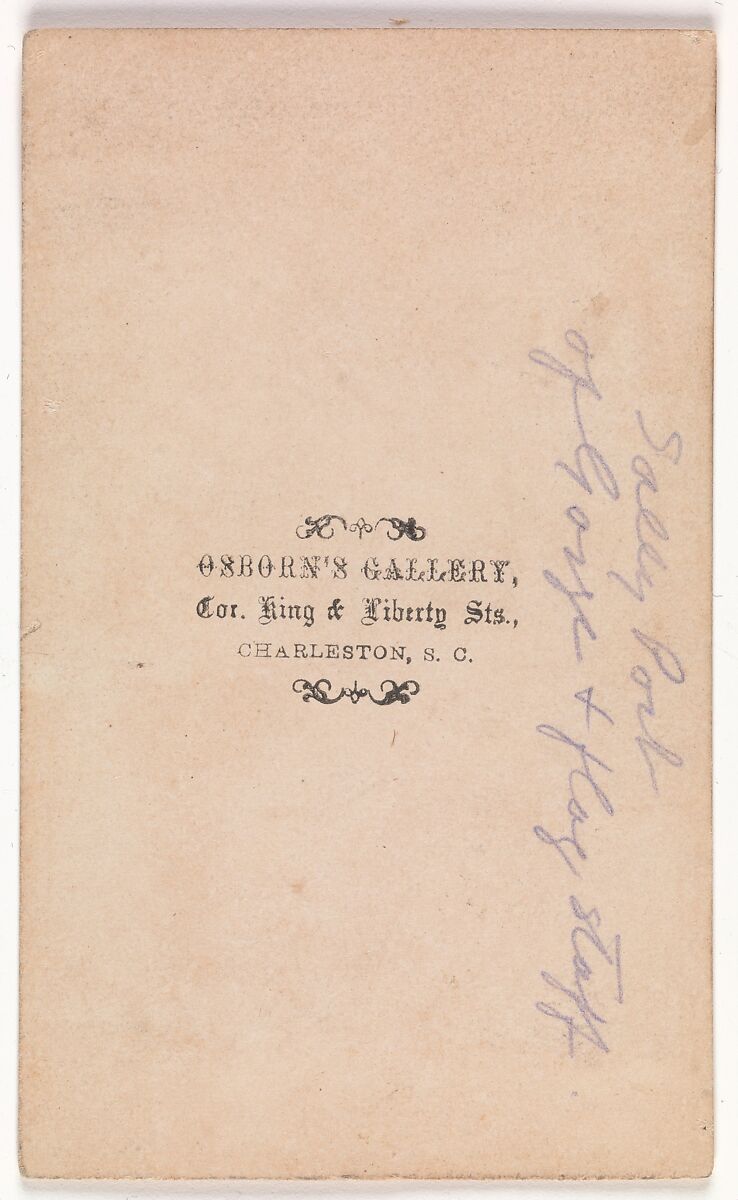 OSBORN'S GALLERY,
Cor. King & Liberty Sts.,
CHARLESTON, S. C.
Sally Port
of Gorge + flag staff.